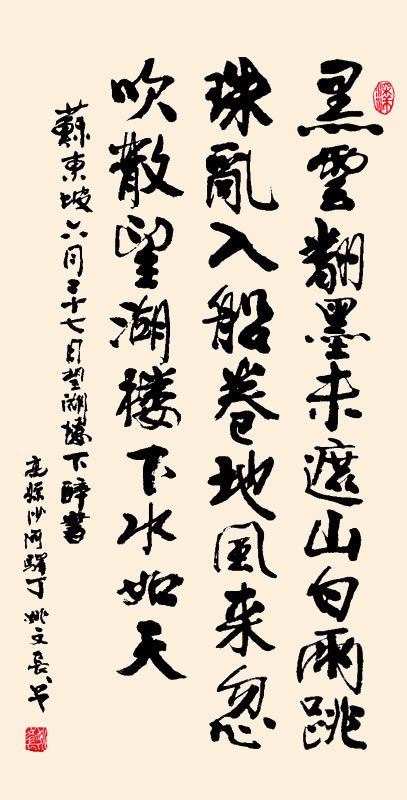 黑雲翻墨未遮山白雨跳
珠亂入船卷地風来忽
吹散望湖楼下水如天
蘇東坡六月二十七日望湖楼下醉書
高縣沙河驛丁姚文長书